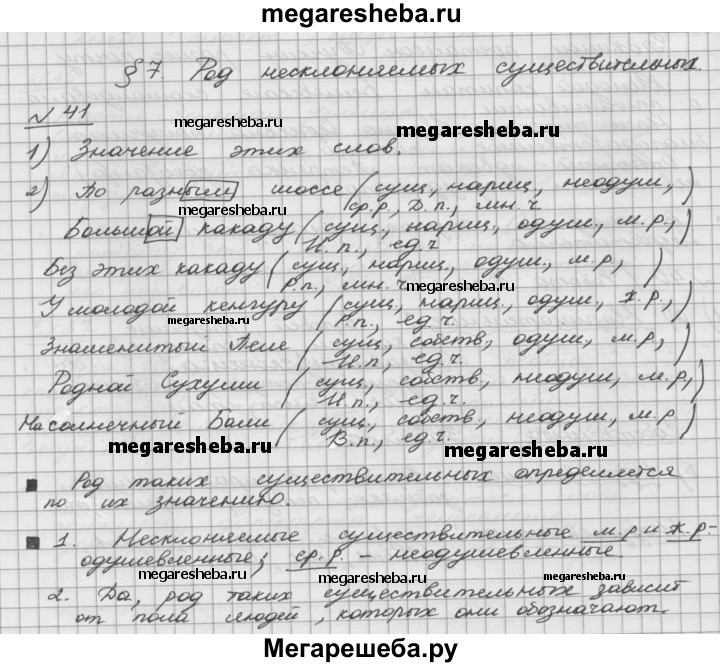 megaresheba.ru
§ 7. Род несклоняемых существительных.
№ 41
megaresheba.ru
megaresheba.ru
1) Значение этих слов.
megaresheba.ru
2) По разным шоссе (сущ., нариц., неодуш.,
ср.р., Д.п., мн.ч.)
megaresheba.ru
Большой какаду (сущ., нариц., одуш., м.р.,
И.п., ед.ч.)
Без этих какаду (сущ., нариц., одуш., м.р.,
Р.п., мн.ч.)
megaresheba.ru
У молодой кенгуру (сущ., нариц., одуш., ж.р.,
Р.п., ед.ч.)
megaresheba.ru
megaresheba.ru
Знаменитый Пеле (сущ., собств., одуш., м.р.,
И.п., ед.ч.)
Родной Сухуми (сущ., собств., неодуш., м.р.,
И.п., ед.ч.)
На солнечный Бали (сущ., собств., неодуш., м.р.
В.п., ед.ч.)
megaresheba.ru
megaresheba.ru
Род таких существительных определяется
megaresheba.ru
по их значению.
megaresheba.ru
1. Несклоняемые существительные м.р и ж.р-
одушевленные; ср.р. – неодушевленные
megaresheba.ru
megaresheba.ru
2. Да, род таких существительных зависит
от пола людей, которых они обозначают.
Мегарешеба.ру